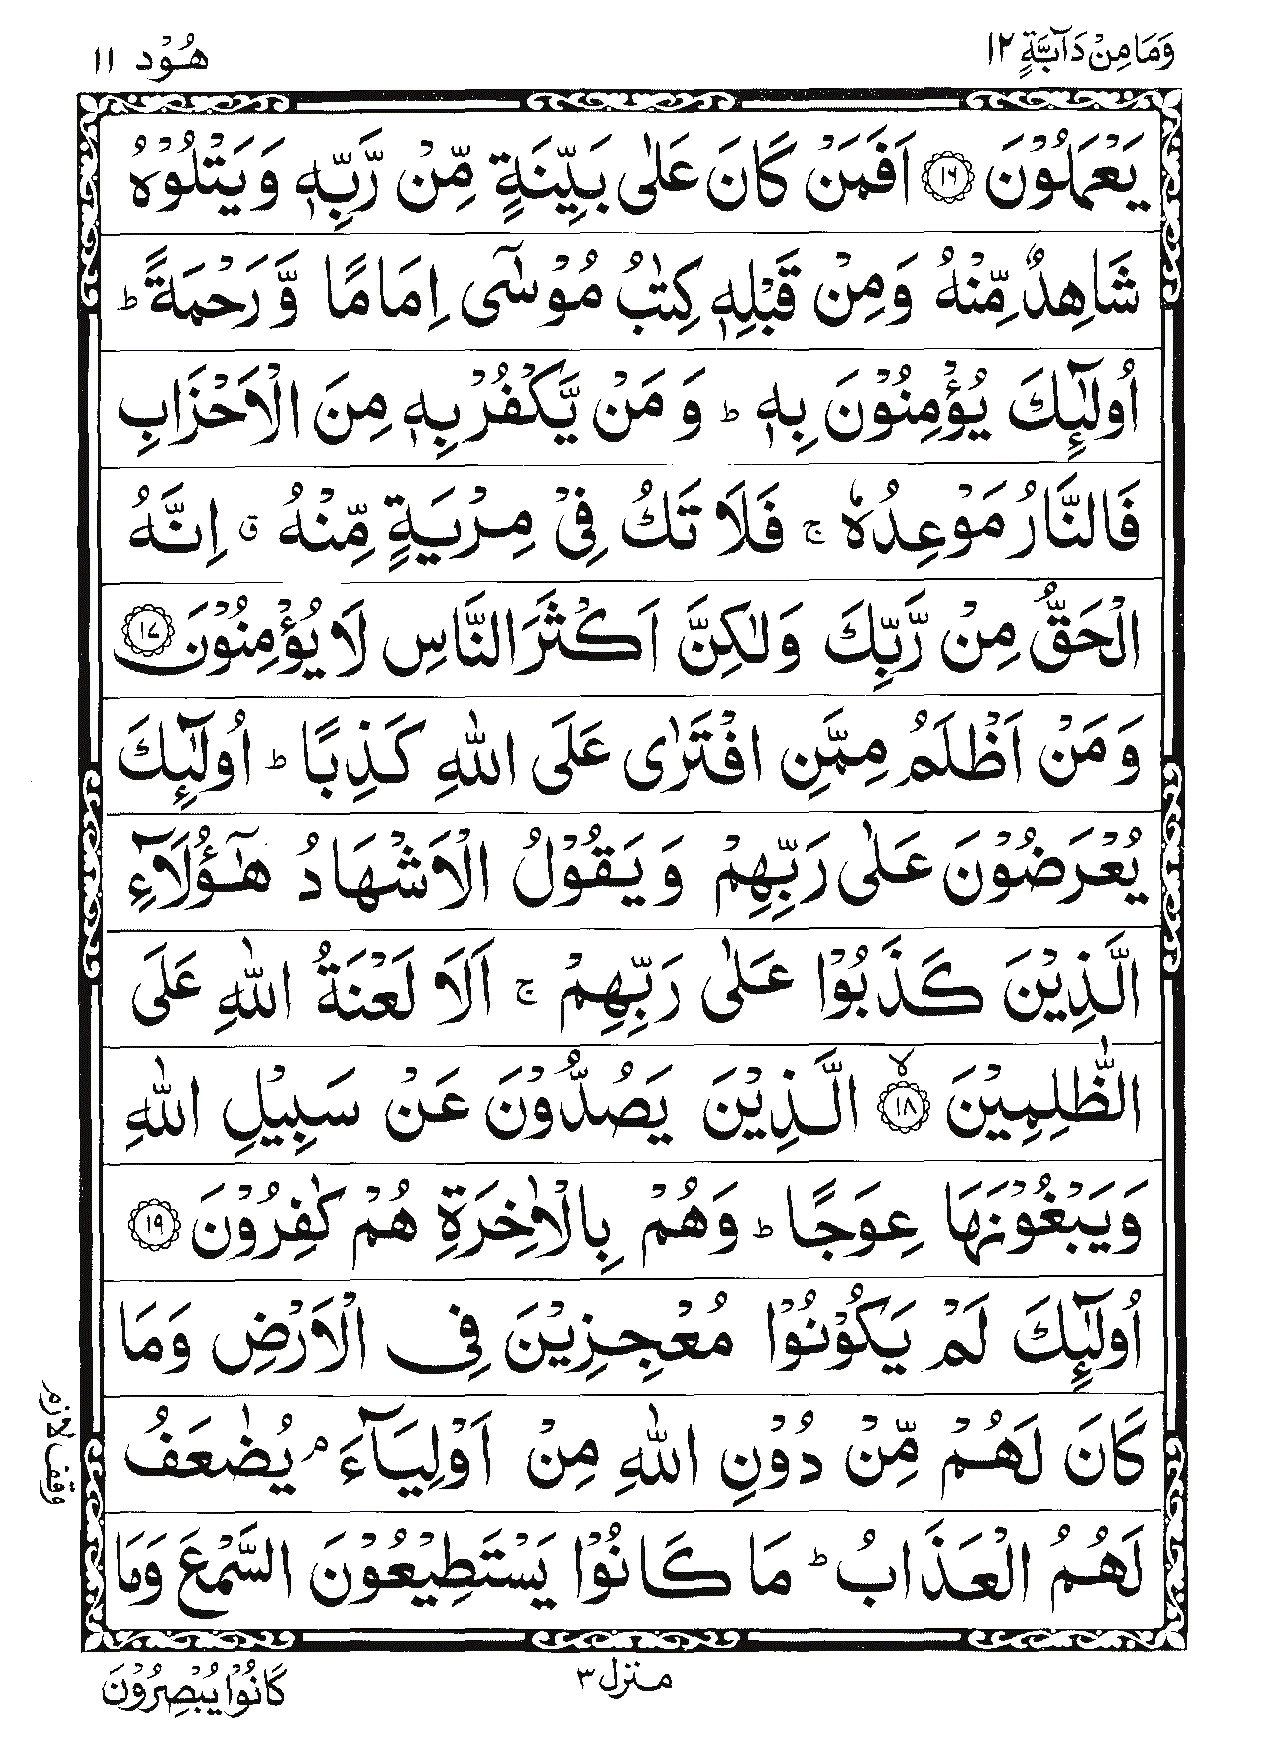 وَمَا مِنْ دَآبَّةٍ ١٢
هُوْد ١١
يَعْمَلُوْنَ ١٦ اَفَمَنْ كَانَ عَلٰى بَيِّنَةٍ مِّنْ رَّبِّهٖ وَيَتْلُوْهُ
شَاهِدٌ مِّنْهُ وَمِنْ قَبْلِهٖ كِتٰبُ مُوْسٰٓى اِمَامًا وَّ رَحْمَةً ؕ
اُولٰٓئِكَ يُؤْمِنُوْنَ بِهٖ ؕ وَ مَنْ يَّكْفُرْ بِهٖ مِنَ الْاَحْزَابِ
فَالنَّارُ مَوْعِدُهٗ ۚ فَلَا تَكُ فِىْ مِرْيَةٍ مِّنْهُ ق اِنَّهُ
الْحَقُّ مِنْ رَّبِّكَ وَلٰكِنَّ اَكْثَرَ النَّاسِ لَا يُؤْمِنُوْنَ ١٧
وَ مَنْ اَظْلَمُ مِمَّنِ افْتَرٰى عَلَى اللّٰهِ كَذِبًا ؕ اُولٰٓئِكَ
يُعْرَضُوْنَ عَلٰى رَبِّهِمْ وَ يَقُوْلُ الْاَشْهَادُ هٰٓؤُلَآءِ
الَّذِيْنَ كَذَبُوْا عَلٰى رَبِّهِمْ ۚ اَلَا لَعْنَةُ اللّٰهِ عَلَى
الظّٰلِمِيْنَ ١٨ ۙ الَّذِيْنَ يَصُدُّوْنَ عَنْ سَبِيْلِ اللّٰهِ
وَيَبْغُوْنَهَا عِوَجًا ؕ وَهُمْ بِالْاٰخِرَةِ هُمْ كٰفِرُوْنَ ١٩
اُولٰٓئِكَ لَمْ يَكُوْنُوْا مُعْجِزِيْنَ فِى الْاَرْضِ وَمَا
كَانَ لَهُمْ مِّنْ دُوْنِ اللّٰهِ مِنْ اَوْلِيَآءَ ۘ يُضٰعَفُ
وقف لازم
لَهُمُ الْعَذَابُ ؕ مَا كَانُوْا يَسْتَطِيْعُوْنَ السَّمْعَ وَمَا
منزل ٣
كَانُوْا يُبْصِرُوْنَ